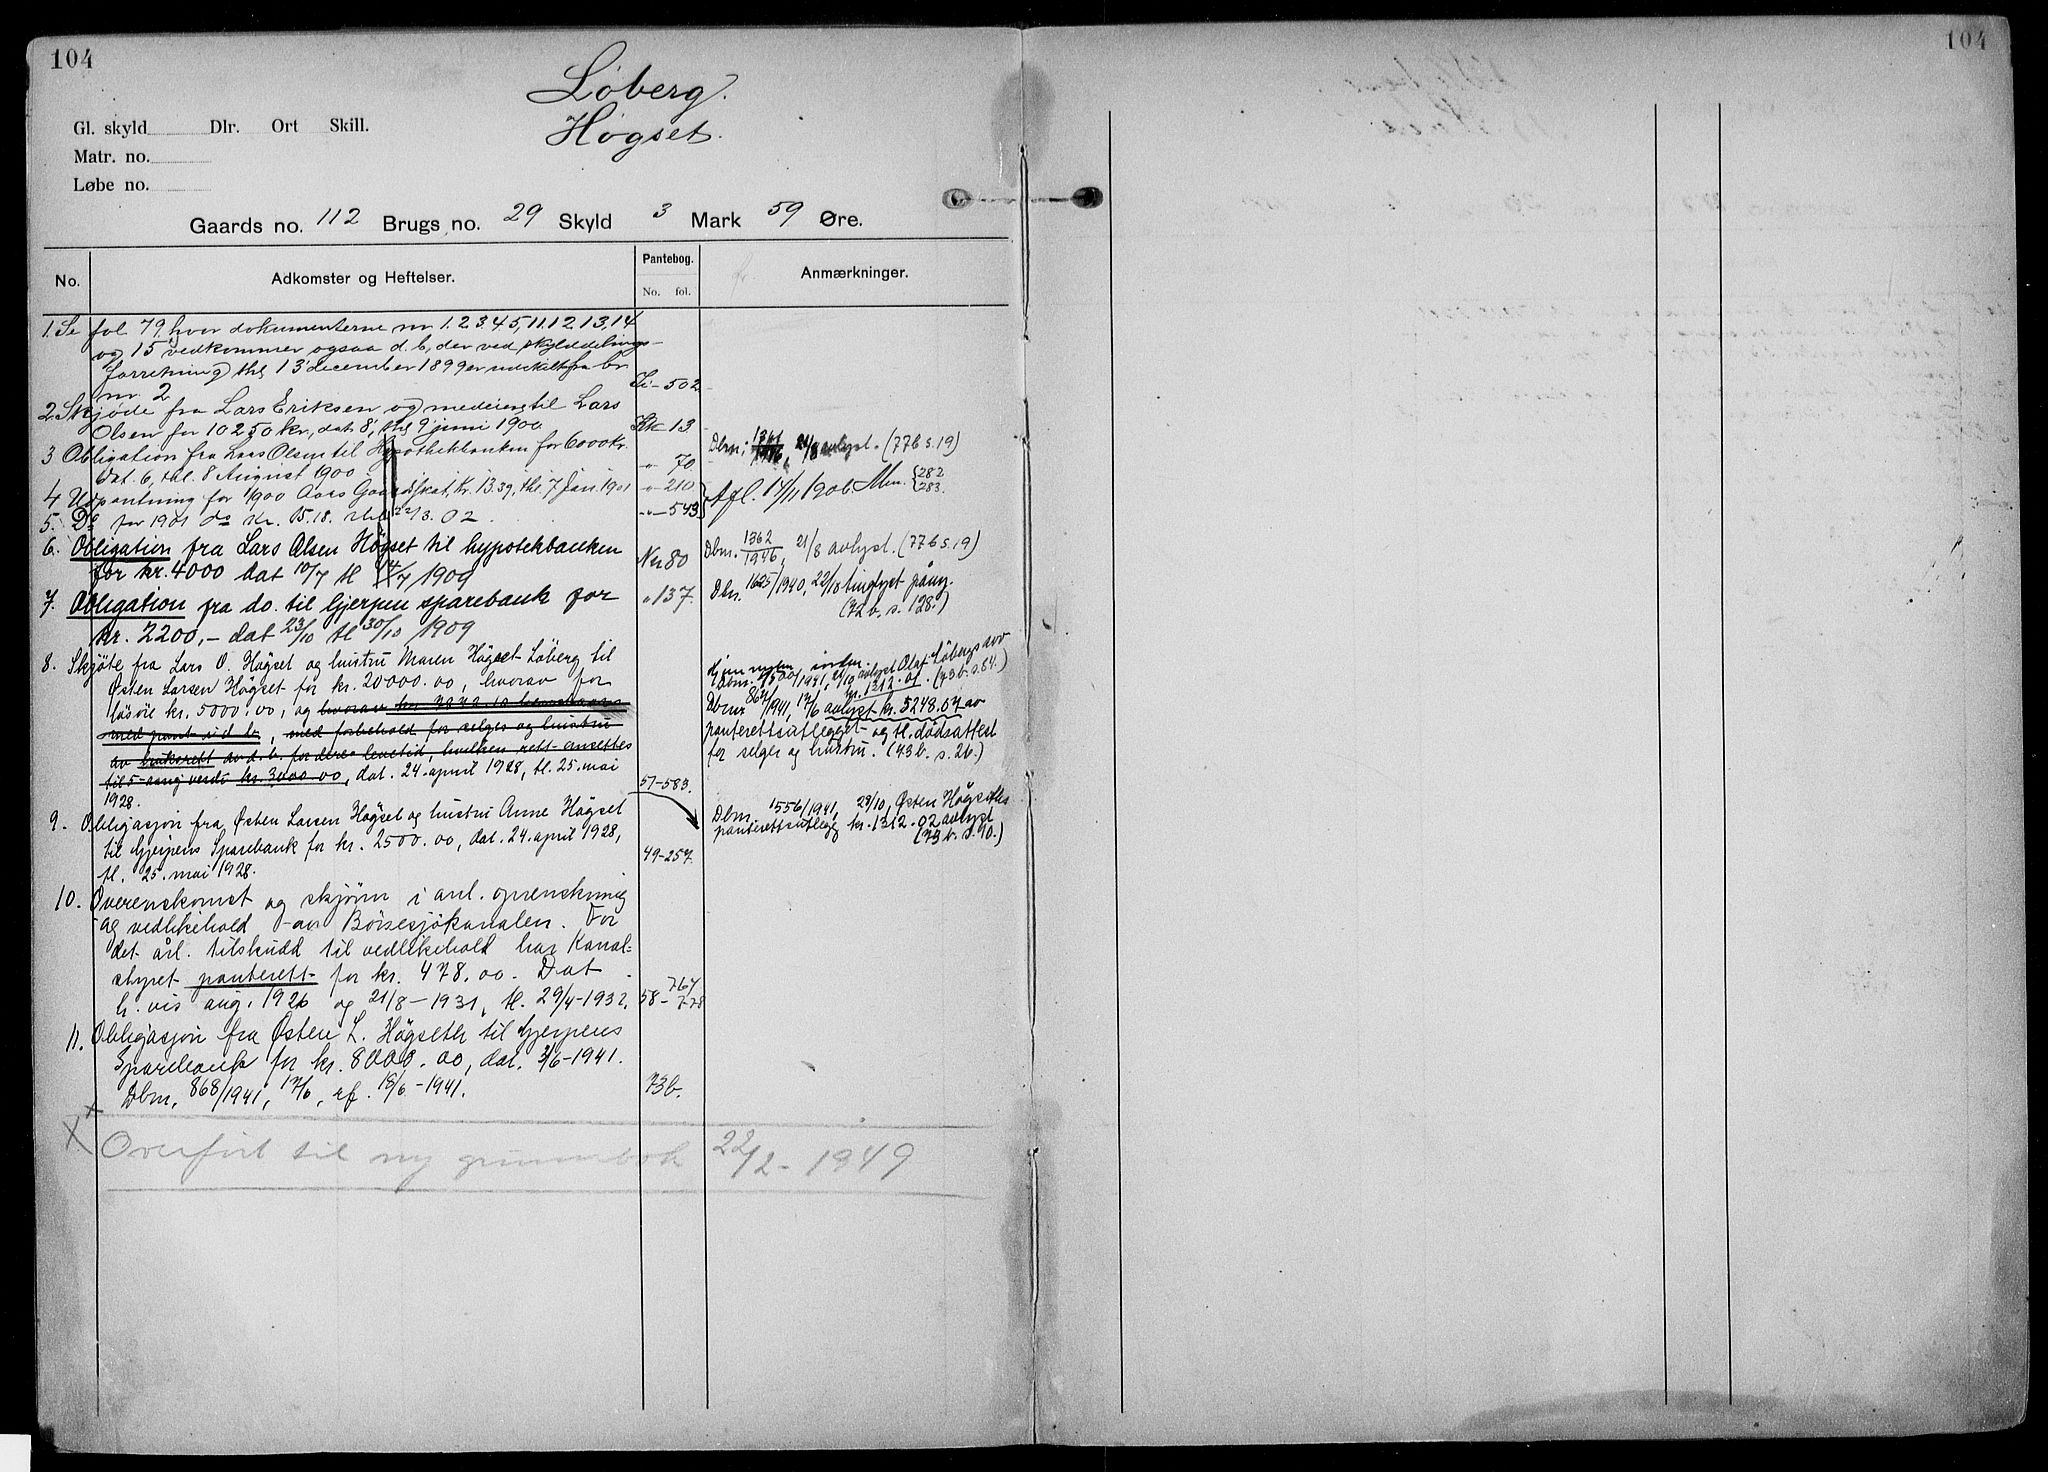 104
104
Løberg.
Høgset.
Gl. skyld Dlr. Ort Skill.
Matr. no.
Løbe no.
Gaards no. 112 Brugs no. 29 Skyld 3 Mark 59 Øre.
No. Adkomster og Heftelser. Pantebog. No. fol. Anmærkninger.
1. Se fol 79 hvor dokumenterne nr 1.2.3.4.5, 11.12.13, 14
og 15 vedkommer ogsaa d. b, der ved skylddelings-
forretning thl 13 december 1899 er udskilt fra br
nr. 2 502
2 Skjøde fra Lars Eriksen og medeiere til Lars
Olsen for 10250 kr, dat 8, thl 9 juni 1900 13
3 Obligation fra Lars Olsen til Hypothekbanken for 6000 kr.
dat. 6, thl. 8 August 1900 " 70
Dbnr. 21/8 avlyst. (77b s. 19)
4 Udpantning for 1900 Aars Gaardskat, Kr. 13.39, thl. 7 Jan. 1901 " 210
5. Do for 1901 do Kr. 15.18. thl 22/3. 02. " 543
Afl. 17/11 1906. {282 283.
6. Obligation fra Lars Olsen Høgset til hypotekbanken
for kr. 4000 dat 10/7 tl 14/7 1909 80
Dbnr. 1362/1946, 21/8 avlyst. (77b s. 19)
7. Obligation fra do. til Gjerpen sparebank for
kr. 2200,- dat 23/10 tl 30/10 1909 " 137.
Dbnr. 1625/1940, 22/10 tinglyst påny.
(72b. s. 128.)
8. Skjøte fra Lars O. Høgset og hustru Maren Høgset Løberg til
Østen Larsen Høgset for kr. 20000.00, hvorav for
løsøre kr. 5000.00, og hvorav kr.
med pant i d. b., med forbehold for selger og hustru
av bruksrett av d. b. for deres levetid, hvilken rett ansettes
til 5-aarig verdi kr. 3000.00, dat. 24. april 1928, tl. 25. mai
1928. 57-583.
avlyst Olaf Løbergs arv
kr. 1312.01. (43b. s. 84.)
Dbnr 867/1941, 17/6 avlyst kr. 5248.07 av
panterettsutlegget og tl. dødsattest
for selger og hustru. (43b. s. 26.)
9. Obligasjon fra Østen Larsen Høgset og hustru Anne Høgset
til Gjerpens Sparebank for kr. 2500.00, dat. 24. april 1928,
tl. 25. mai 1928. 49-257.
Dbnr. 1556/1941, 29/10, Østen Høgseths
panterettsutlegg kr. 1312.02 avlyst
(73b. s. 90.)
10. Overenskomst og skjønn i anl. oprenskning
og vedlikehold av Børsesjøkanalen. For
det årl. tilskudd til vedlikehold har Kanal=
styret panterett for kr. 478.00. Dat
h. vis aug. 1926 og 21/8-1931, tl. 29/4-1932. 58-764 778
11. Obligasjon fra Østen L. Høgseth til Gjerpens
Sparebank for kr. 8000.00, dat. 3/6-1941.
Dbnr. 868/1941, 17/6, rf. 18/6-1941. 73b.
X Overført til ny grunnbok 22/2-1949